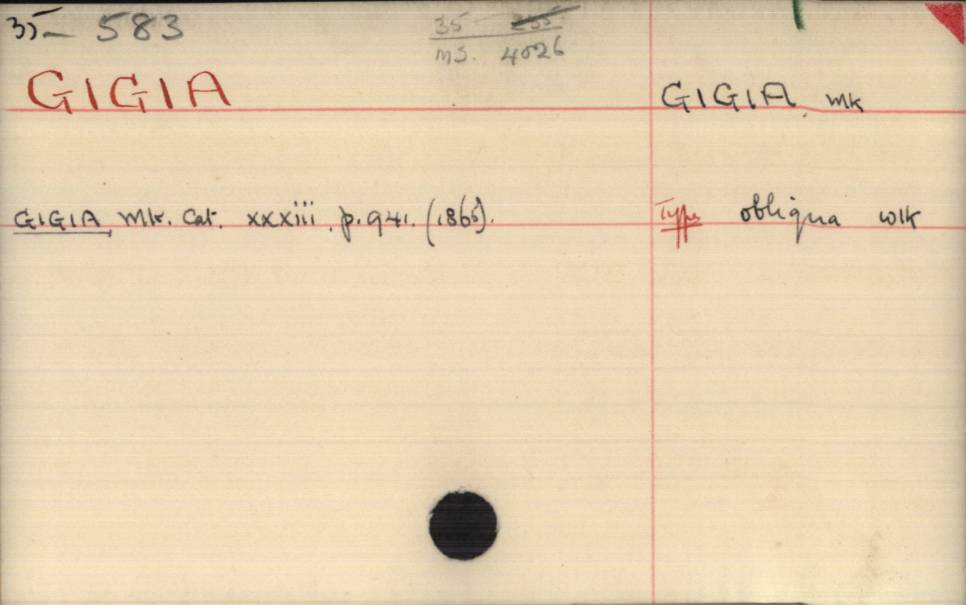 35- 583
35 235
MS. 4026
GIGIA
GIGIA, Wlk
GIGIA, Wlk. Cat. xxxiii. p. 941. (1865).
Type obliqua Wlk